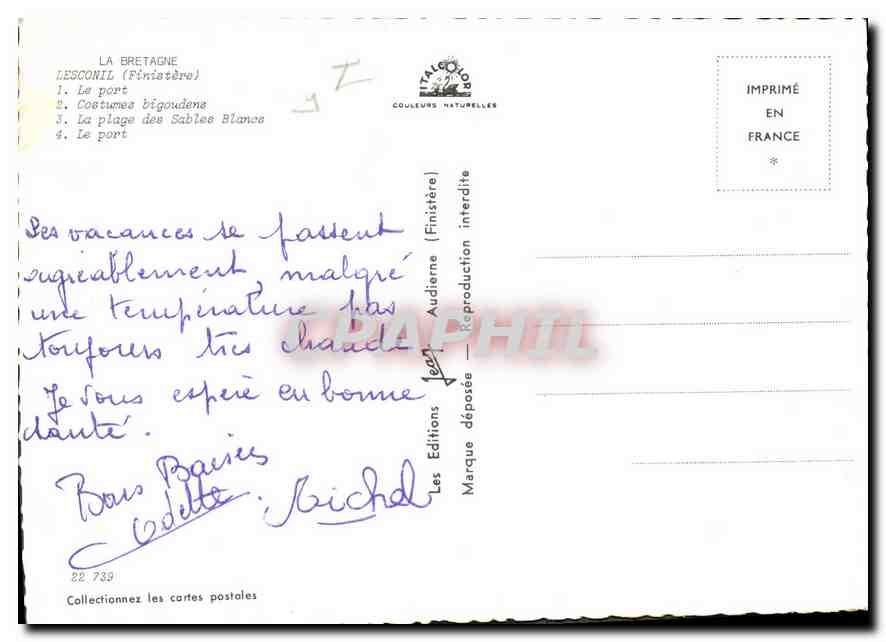 LA BRETAGNE
LESCONIL (Finistère)
1. Le port
2. Costumes bigoudens
3. La plage des Sables Blancs
4. Le port
ITALCOLOR
COULEURS NATURELLES
IMPRIMÉ
EN
FRANCE
*
Les vacances se passent
agréablement, malgré
une température pas
toujours très chaude
Je vous espère en bonne
santé.
Bons Baisers
Odette. Michel
22 739
Collectionnez les cartes postales
Les Editions Jean Audierne (Finistère)
Marque déposée — Reproduction interdite
CPAPHIL